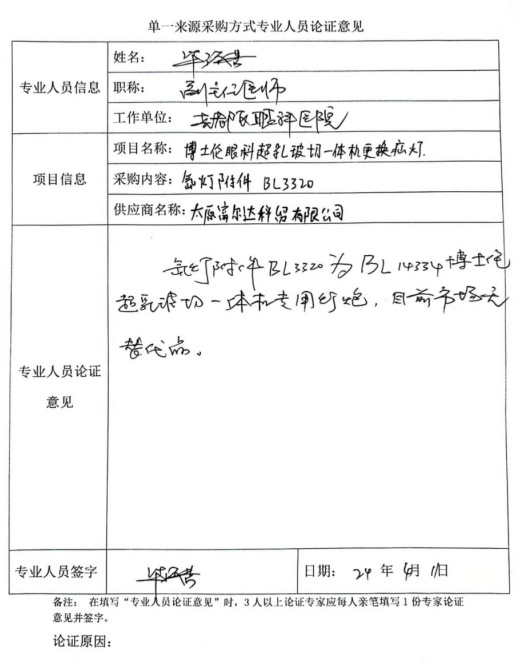 单一来源采购方式专业人员论证意见
专业人员信息
姓名:
职称: 副主任医师
工作单位: 眼科医院
项目信息
项目名称: 博士伦眼科超乳玻切一体机更换氙灯.
采购内容: 氙灯附件 BL3320
供应商名称: 太原富尔达科贸有限公司
专业人员论证
意见
氙灯附件BL3320为BL14334博士伦
超乳玻切一体机专用灯炮，目前市场无
替代品。
专业人员签字
日期: 24 年 4月 11日
备注: 在填写“专业人员论证意见”时，3人以上论证专家应每人亲笔填写1份专家论证
意见并签字。
论证原因: